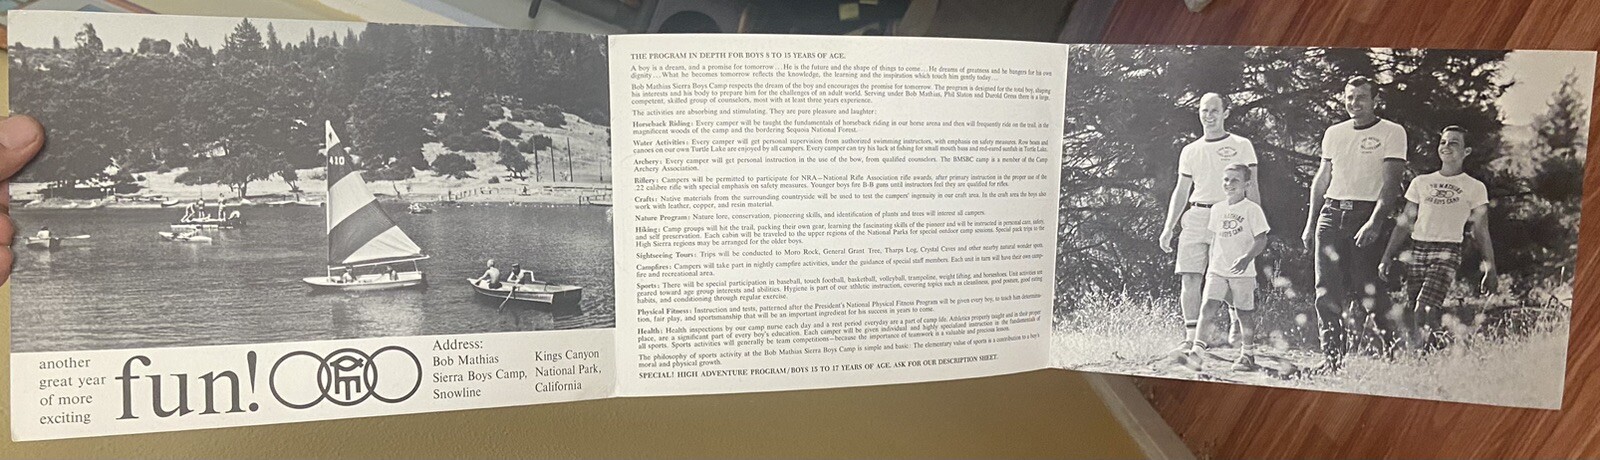 410
another
great year
of more
exciting
fun!
Address:
Bob Mathias
Sierra Boys Camp,
Snowline
Kings Canyon
National Park,
California
THE PROGRAM IN DEPTH FOR BOYS 8 TO 15 YEARS OF AGE.
A boy is a dream, and a promise for tomorrow... He is the future and the shape of things to come... He dreams of greatness and he hungers for his own
dignity... What he becomes tomorrow reflects the knowledge, the learning and the inspiration which touch him gently today...
Bob Mathias Sierra Boys Camp respects the dream of the boy and encourages the promise for tomorrow. The program is designed for the total boy, shaping
his interests and his body to prepare him for the challenges of an adult world. Serving under Bob Mathias, Phil Slaton and Durold Gross there is a large,
competent, skilled group of counselors, most with at least three years experience.
The activities are absorbing and stimulating. They are pure pleasure and laughter:
Horseback Riding: Every camper will be taught the fundamentals of horseback riding in our horse arena and then will frequently ride on the trail, in the
magnificent woods of the camp and the bordering Sequoia National Forest.
Water Activities: Every camper will get personal supervision from authorized swimming instructors, with emphasis on safety measures. Row boats and
canoes on our own Turtle Lake are enjoyed by all campers. Every camper can try his luck at fishing for small mouth bass and red-eared sunfish in Turtle Lake.
Archery: Every camper will get personal instruction in the use of the bow, from qualified counselors. The BMSBC camp is a member of the Camp
Archery Association.
Riflery: Campers will be permitted to participate for NRA—National Rifle Association rifle awards, after primary instruction in the proper use of the
.22 calibre rifle with special emphasis on safety measures. Younger boys fire B-B guns until instructors feel they are qualified for rifles.
Crafts: Native materials from the surrounding countryside will be used to test the campers' ingenuity in our craft area. In the craft area the boys also
work with leather, copper, and resin material.
Nature Program: Nature lore, conservation, pioneering skills, and identification of plants and trees will interest all campers.
Hiking: Camp groups will hit the trail, packing their own gear, learning the fascinating skills of the pioneer and will be instructed in personal care, safety,
and self preservation. Each cabin will be traveled to the upper regions of the National Parks for special outdoor camp sessions. Special pack trips in the
High Sierra regions may be arranged for the older boys.
Sightseeing Tours: Trips will be conducted to Moro Rock, General Grant Tree, Tharps Log, Crystal Caves and other nearby natural wonder spots.
Campfires: Campers will take part in nightly campfire activities, under the guidance of special staff members. Each unit in turn will have their own camp-
fire and recreational area.
Sports: There will be special participation in baseball, touch football, basketball, volleyball, trampoline, weight lifting, and horseshoes. Unit activities are
geared toward age group interests and abilities. Hygiene is part of our athletic instruction, covering topics such as cleanliness, good posture, good eating
habits, and conditioning through regular exercise.
Physical Fitness: Instruction and tests, patterned after the President's National Physical Fitness Program will be given every boy, to teach him determina-
tion, fair play, and sportsmanship that will be an important ingredient for his success in years to come.
Health: Health inspections by our camp nurse each day and a rest period everyday are a part of camp life. Athletics properly taught and in their proper
place, are a significant part of every boy's education. Each camper will be given individual and highly specialized instruction in the fundamentals of
all sports. Sports activities will generally be team competitions—because the importance of teamwork is a valuable and precious lesson.
The philosophy of sports activity at the Bob Mathias Sierra Boys Camp is simple and basic: The elementary value of sports is a contribution to a boy's
moral and physical growth.
SPECIAL! HIGH ADVENTURE PROGRAM/BOYS 15 TO 17 YEARS OF AGE. ASK FOR OUR DESCRIPTION SHEET.